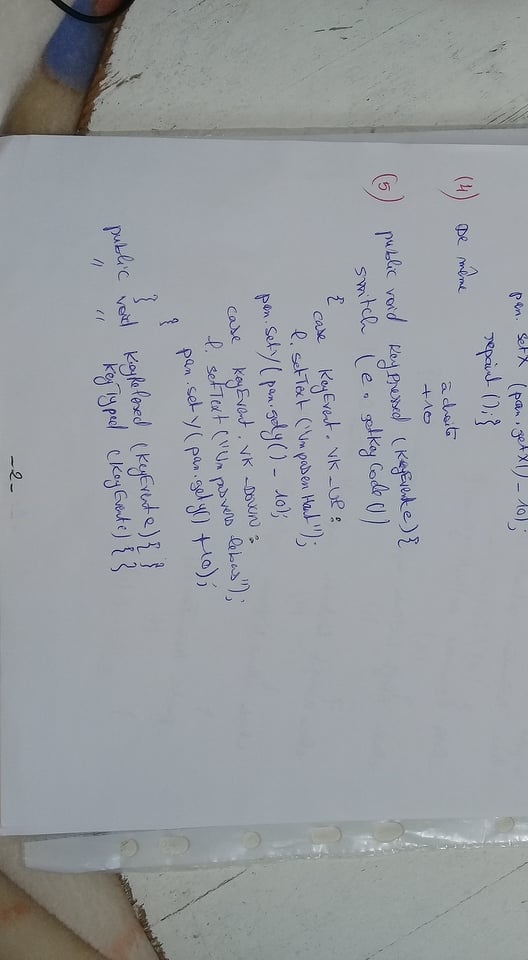 pan. setX (pan.getX() - 10);
repaint();}
(4) De même
à droite
+10
(5) public void KeyPressed (KeyEvent e){
switch (e. getKeyCode())
{
case KeyEvent. VK_UP:
l. setText ("Un pas en Haut");
pan. setY(pan.gety() - 10);
case KeyEvent. VK_DOWN:
l. setText ("Un pas vers le bas");
pan. set Y( pan.gety() +10);
}
}
public void KeyRelesed (KeyEvent e){ }
" " KeyTyped (KeyEvent e) { }
-2-